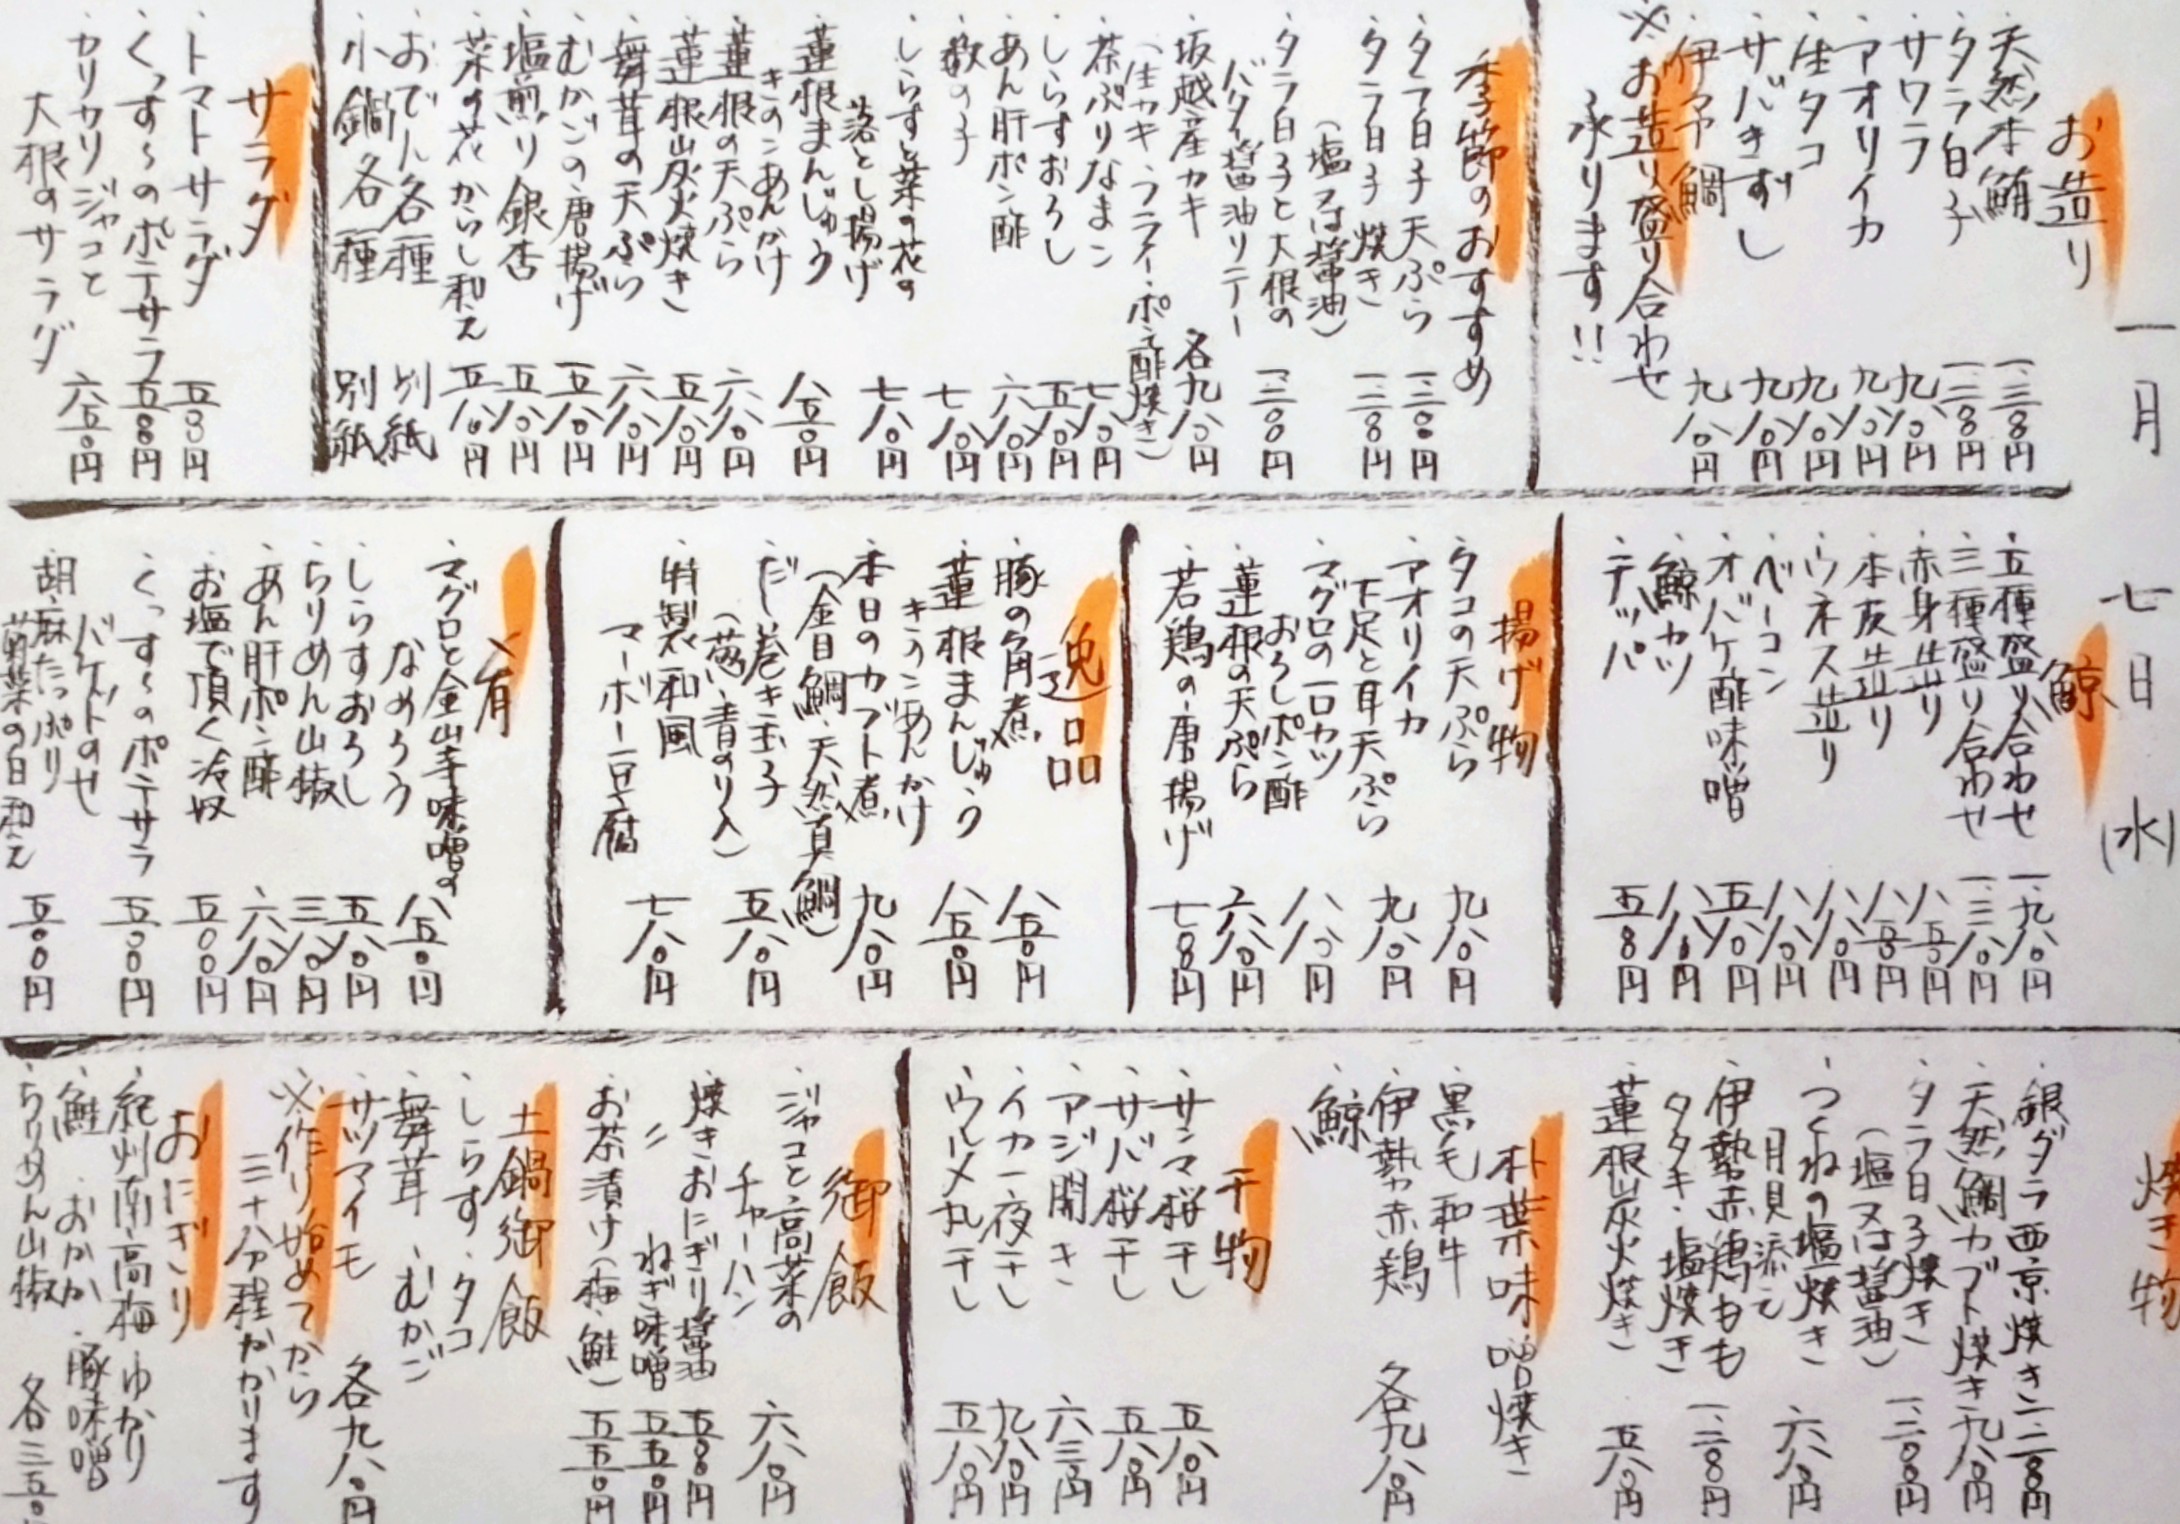 一月 七日 (水)
お造り
・天然本鮪 一、二八〇円
・タラ白子 一、二八〇円
・サワラ 九八〇円
・アオリイカ 九八〇円
・生タコ 九八〇円
・サバきずし 九八〇円
・伊予鯛 九八〇円
※お造り盛り合わせ
承ります!!
季節のおすすめ
・タラ白子天ぷら 一、二八〇円
・タラ白子焼き 一、二八〇円
(塩又は醤油)
・タラ白子と大根の
バター醤油ソテー 一、二八〇円
・坂越産カキ 各九八〇円
(生カキ・フライ・ポン酢焼き)
・茶ぶりなまこ 七八〇円
・しらすおろし 五八〇円
・あん肝ポン酢 六八〇円
・数の子 七八〇円
・しらすと菜の花の
落とし揚げ 七八〇円
・蓮根まんじゅう
きのこあんかけ 八五〇円
・蓮根の天ぷら 六八〇円
・蓮根炭火焼き 五八〇円
・舞茸の天ぷら 六八〇円
・むかごの唐揚げ 五八〇円
・塩煎り銀杏 五八〇円
・菜の花からし和え 五八〇円
・おでん各種 別紙
・小鍋各種 別紙
サラダ
・トマトサラダ 五八〇円
・くっす〜のポテサラ 五八〇円
・カリカリジャコと
大根のサラダ 六五〇円
鯨
・五種盛り合わせ 一、九八〇円
・三種盛り合わせ 一、三八〇円
・赤身造り 八五〇円
・本皮造り 八五〇円
・ウネス造り 八八〇円
・ベーコン 八八〇円
・オバケ酢味噌 五八〇円
・鯨カツ 八八〇円
・テッパ 五八〇円
揚げ物
・タコの天ぷら 九八〇円
・アオリイカ
下足と耳天ぷら 九八〇円
・マグロの一口カツ
おろしポン酢 八八〇円
・蓮根の天ぷら 六八〇円
・若鶏の唐揚げ 七八〇円
逸品
・豚の角煮 八五〇円
・蓮根まんじゅう
きのこあんかけ 八五〇円
・本日のカブト煮 九八〇円
(金目鯛・天然真鯛)
・だし巻き玉子 五八〇円
(葱・青のり入)
・特製和風
マーボー豆腐 七八〇円
肴
・マグロと金山寺味噌の
なめろう 八五〇円
・しらすおろし 五八〇円
・ちりめん山椒 三八〇円
・あん肝ポン酢 六八〇円
・お塩で頂く冷奴 五〇〇円
・くっす〜のポテサラ
バゲットのせ 五〇〇円
・胡麻たっぷり
菊菜の白和え 五〇〇円
焼き物
・銀ダラ西京焼き 一、二八〇円
・天然鯛カブト焼き 九八〇円
・タラ白子焼き 一、二八〇円
(塩又は醤油)
・つくねの塩焼き
月見添え 六八〇円
・伊勢赤鶏もも
タタキ・塩焼き 一、二八〇円
・蓮根炭火焼き 五八〇円
朴葉味噌焼き
・黒毛和牛
・伊勢赤鶏
・鯨 各九八〇円
干物
・サンマ桜干し 五八〇円
・サバ桜干し 五八〇円
・アジ開き 六三〇円
・イカ一夜干し 九八〇円
・ウルメ丸干し 五八〇円
御飯
・ジャコと高菜の
チャーハン 六八〇円
・焼きおにぎり醤油 五〇〇円
・〃 ねぎ味噌 五五〇円
・お茶漬け(梅・鮭) 五五〇円
土鍋御飯
・しらす・タコ
・舞茸・むかご
・サツマイモ 各九八〇円
※作り始めてから
三十分程かかります
おにぎり
・紀州南高梅・ゆかり
・鮭・おかか・豚味噌
・ちりめん山椒 各三五〇